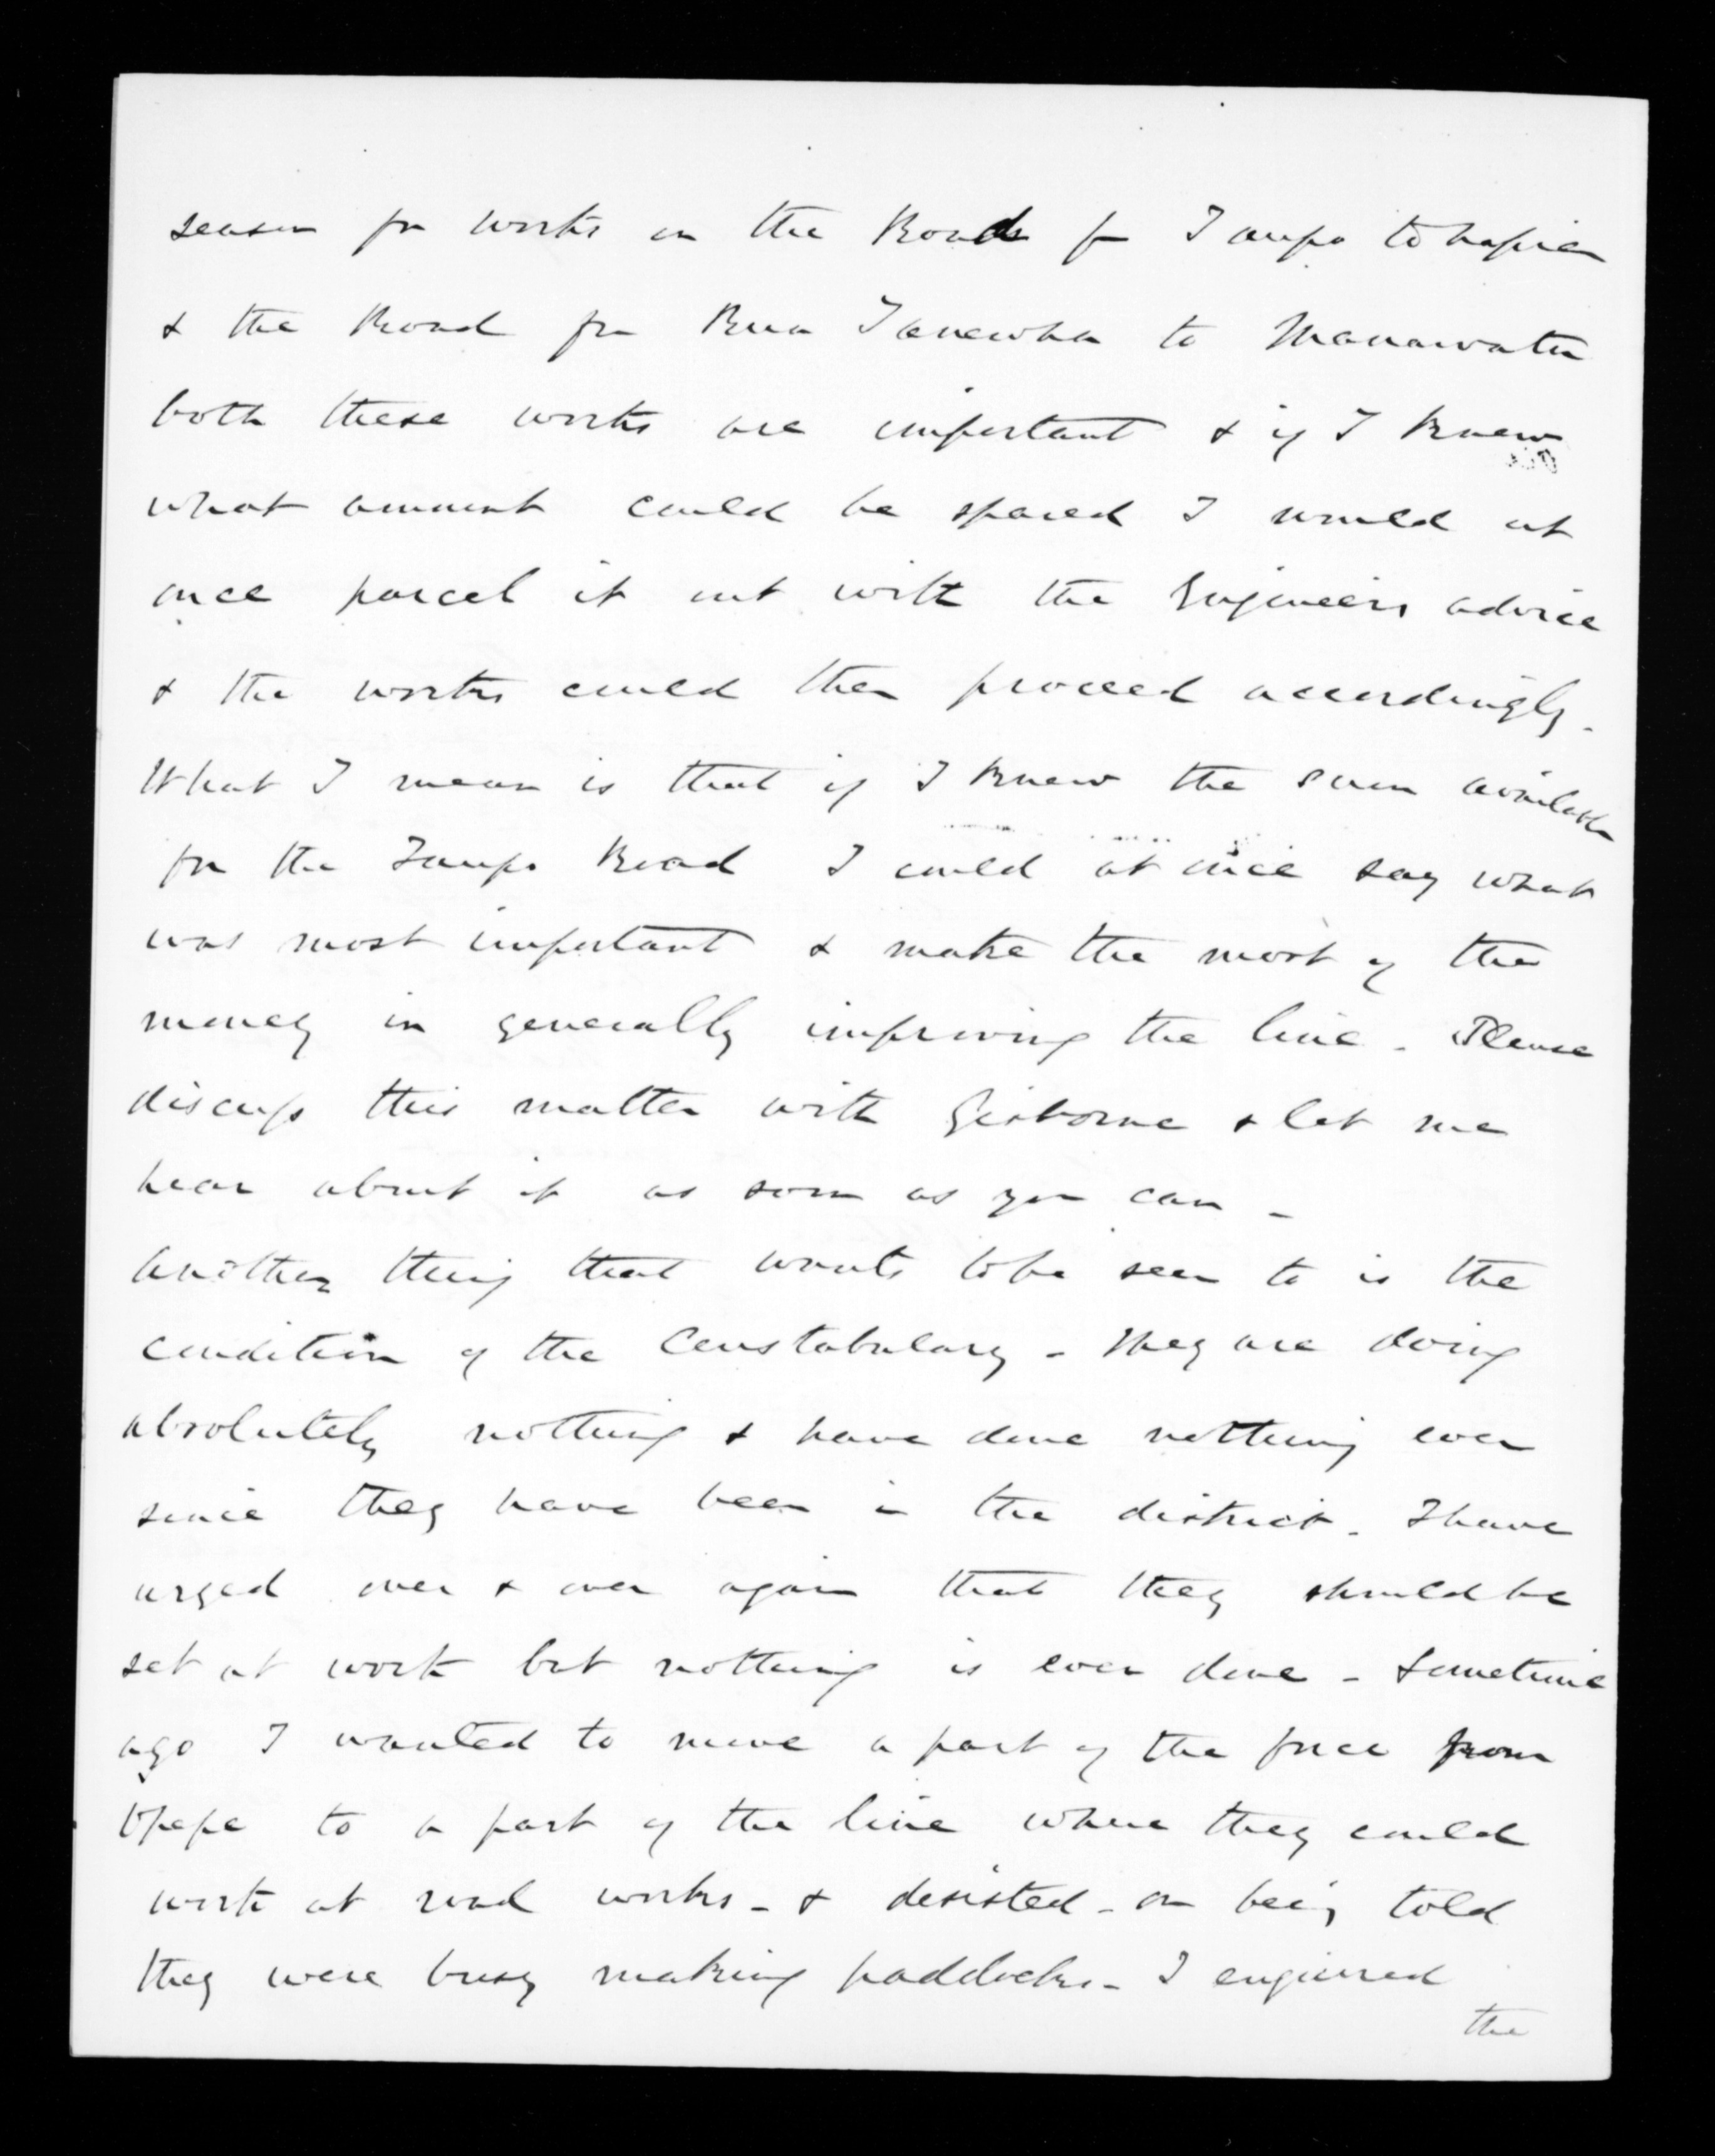 season for works on the Road fr Taupo to Napier
& the Road fr Rua Tanewha to Manawatu
both these works are important & if I knew
what amount could be spared I would at
once parcel it out with the Engineers advice
& the works could then proceed accordingly.
What I mean is that if I knew the sum available
for the Taupo Road I could at once say what
was most important & make the most of the
money in generally improving the line - Please
discuss this matter with Gisborne & let me
hear about it as soon as you can -
Another thing that wants to be seen to is the
condition of the Constabulary - They are doing
absolutely nothing & have done nothing ever
since they have been in the district - I have
urged over & over again that they should be
set at work but nothing is ever done - Sometime
ago I wanted to move a part of the force from
Opepe to a part of the line where they could
work at road works - & desisted - on being told
they were busy making paddocks - I enquired
the